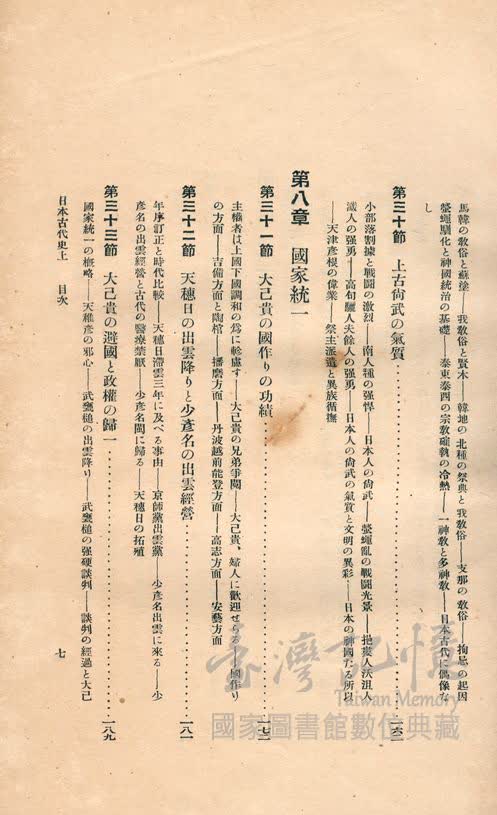 馬韓の敎俗と蘇塗――我敎俗と賢木――韓地の北種の祭典と我敎俗――支那の敎俗――拘忌の起因
螢蠅馴化と神國統治の基礎――泰東泰西の宗敎確執の冷熱――一神敎と多神敎――日本古代に偶像な
し
第三十節 上古尙武の氣質……一六一
小部落割據と戰鬪の激烈――南人種の强悍――日本人の尙武――螢蠅亂の戰鬪光景――挹婁人沃沮人
濊人の强勇――高句驪人夫餘人の强勇――日本人の尙武の氣質と文明の異彩――日本の神國たる所以
――天津彥根の偉業――祭主派遣と異族循撫
第八章 國家統一
第三十一節 大己貴の國作りの功績……一七一
主權者は上國下國調和の爲に軫慮す――大己貴の兄弟爭鬩――大己貴、婦人に歡迎せらる――國作り
の方面――吉備方面と陶棺――播磨方面――丹波越前能登方面――高志方面――安藝方面
第三十二節 天穗日の出雲降りと少彥名の出雲經營……一八一
年序訂正と時代比較――天穗日滯雲三年に及べる事由――京師黨出雲黨――少彥名出雲に來る――少
彥名の出雲經營と古代の醫療禁厭――少彥名閩に歸る――天穗日の拓殖
第三十三節 大己貴の避國と政權の歸一……一八九
國家統一の槪略――天稚彥の邪心――武甕槌の出雲降り――武甕槌の强硬談判――談判の經過と大己
日本古代史上 目次
七
臺灣記憶
Taiwan Memory
國家圖書館數位典藏